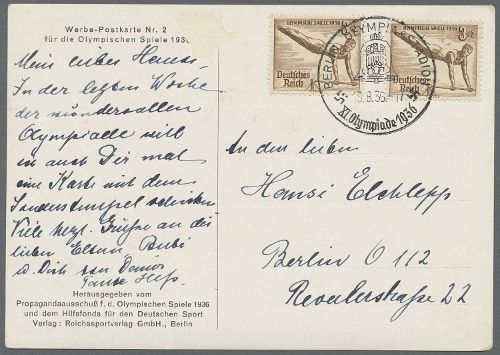 Werbe-Postkarte Nr. 2
für die Olympischen Spiele 1936
Mein lieber Hansi,
In der letzten Woche
der wundervollen
Olympiade will
ich auch Dir mal
eine Karte mit dem
Sonderstempel schicken
Viele herzl. Grüße an die
lieben Eltern Bubi
u. Dich von Deiner
Tante
Herausgegeben vom
Propagandaausschuß f. d. Olympischen Spiele 1936
und dem Hilfsfonds für den Deutschen Sport
Verlag: Reichssportverlag GmbH., Berlin
OLYMPISCHE SPIELE 1936
Deutsches
Reich
OLYMPISCHE SPIELE 1936
Deutsches
Reich
BERLIN OLYMPIA-STADION
.8.36.-17
XI. Olympiade 1936
An den lieben
Hansi
Berlin O 112
Revalerstraße 22